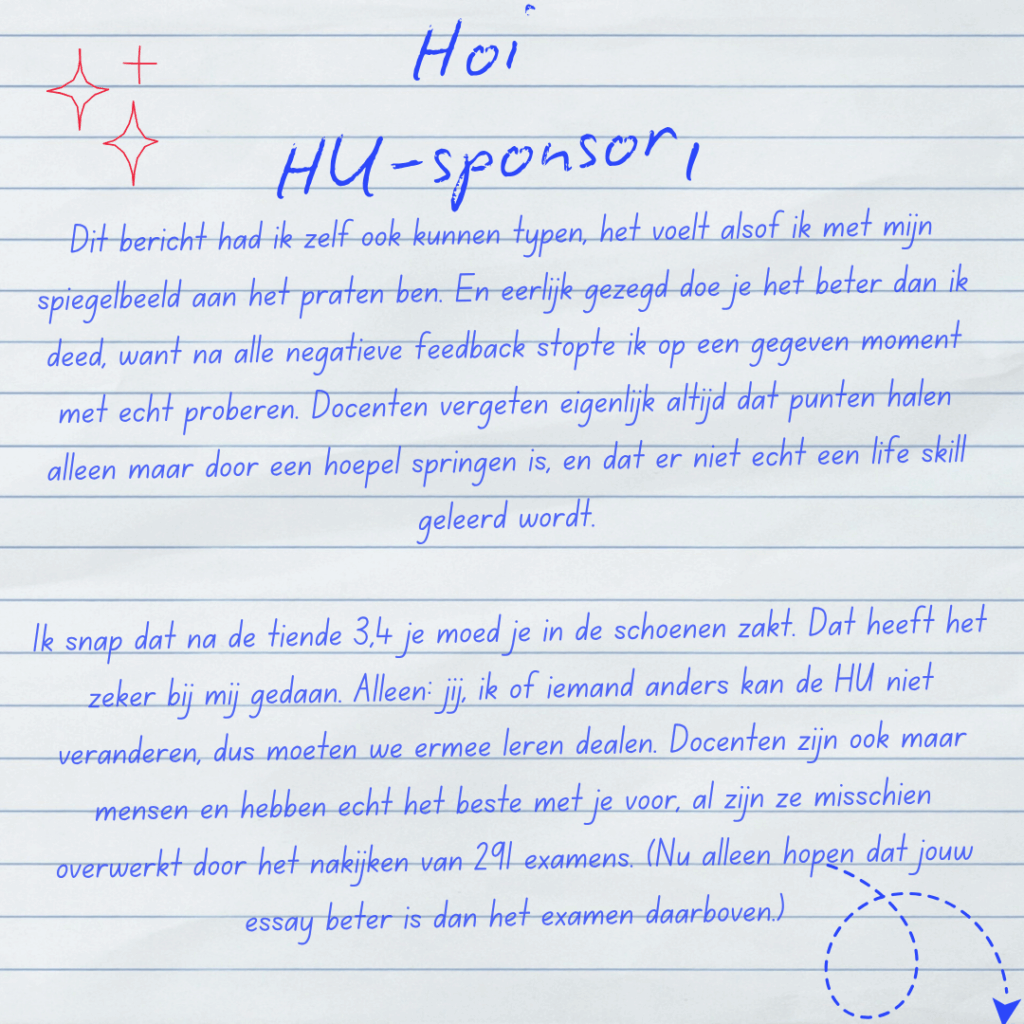 Hoi
HU-sponsor,
Dit bericht had ik zelf ook kunnen typen, het voelt alsof ik met mijn
spiegelbeeld aan het praten ben. En eerlijk gezegd doe je het beter dan ik
deed, want na alle negatieve feedback stopte ik op een gegeven moment
met echt proberen. Docenten vergeten eigenlijk altijd dat punten halen
alleen maar door een hoepel springen is, en dat er niet echt een life skill
geleerd wordt.
Ik snap dat na de tiende 3,4 je moed je in de schoenen zakt. Dat heeft het
zeker bij mij gedaan. Alleen: jij, ik of iemand anders kan de HU niet
veranderen, dus moeten we ermee leren dealen. Docenten zijn ook maar
mensen en hebben echt het beste met je voor, al zijn ze misschien
overwerkt door het nakijken van 291 examens. (Nu alleen hopen dat jouw
essay beter is dan het examen daarboven.)